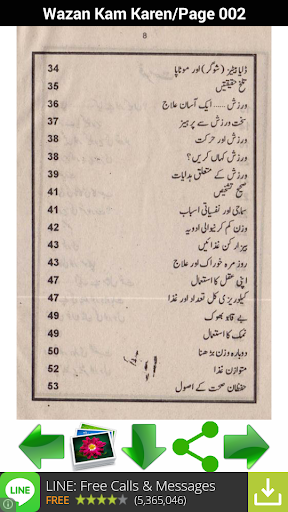 Wazan Kam Karen/Page 002
8
ڈایابیٹیز (شوگر) اور موٹاپا 34
تلخ حقیقتیں 35
ورزش ..... ایک آسان علاج 36
سخت ورزش سے پرہیز 37
ورزش اور حرکت 38
ورزش کہاں کریں؟ 38
ورزش کے متعلق ہدایات 39
صحیح تشخیص 41
سماجی اور نفسیاتی اسباب 41
وزن کم کرنیوالی ادویہ 42
بیزار کن غذائیں 43
روز مرہ خوراک اور علاج 43
اپنی عقل کا استعمال 47
کیلوریز کی کل تعداد اور غذا 47
بے قابو بھوک 49
نمک کا استعمال 49
دوبارہ وزن بڑھنا 50
متوازن غذا 52
حفظان صحت کے اصول 53
LINE
LINE: Free Calls & Messages
FREE (5,365,046)